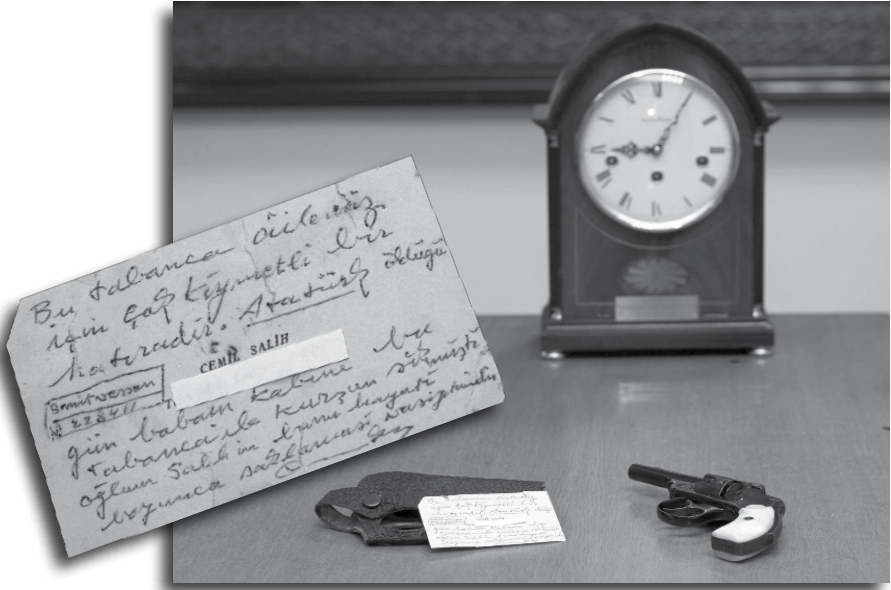 Bu tabanca âilemiz
için çok kıymetli bir
hatıradır. Atatürk öldüğü
CEMİL SALİH
Smitwesson
N 223411
gün babam kalbine bu
tabanca ile kurşun sıkmıştı
oğlum Salih'in bunu hayatı
boyunca saklaması vasiyetimdir